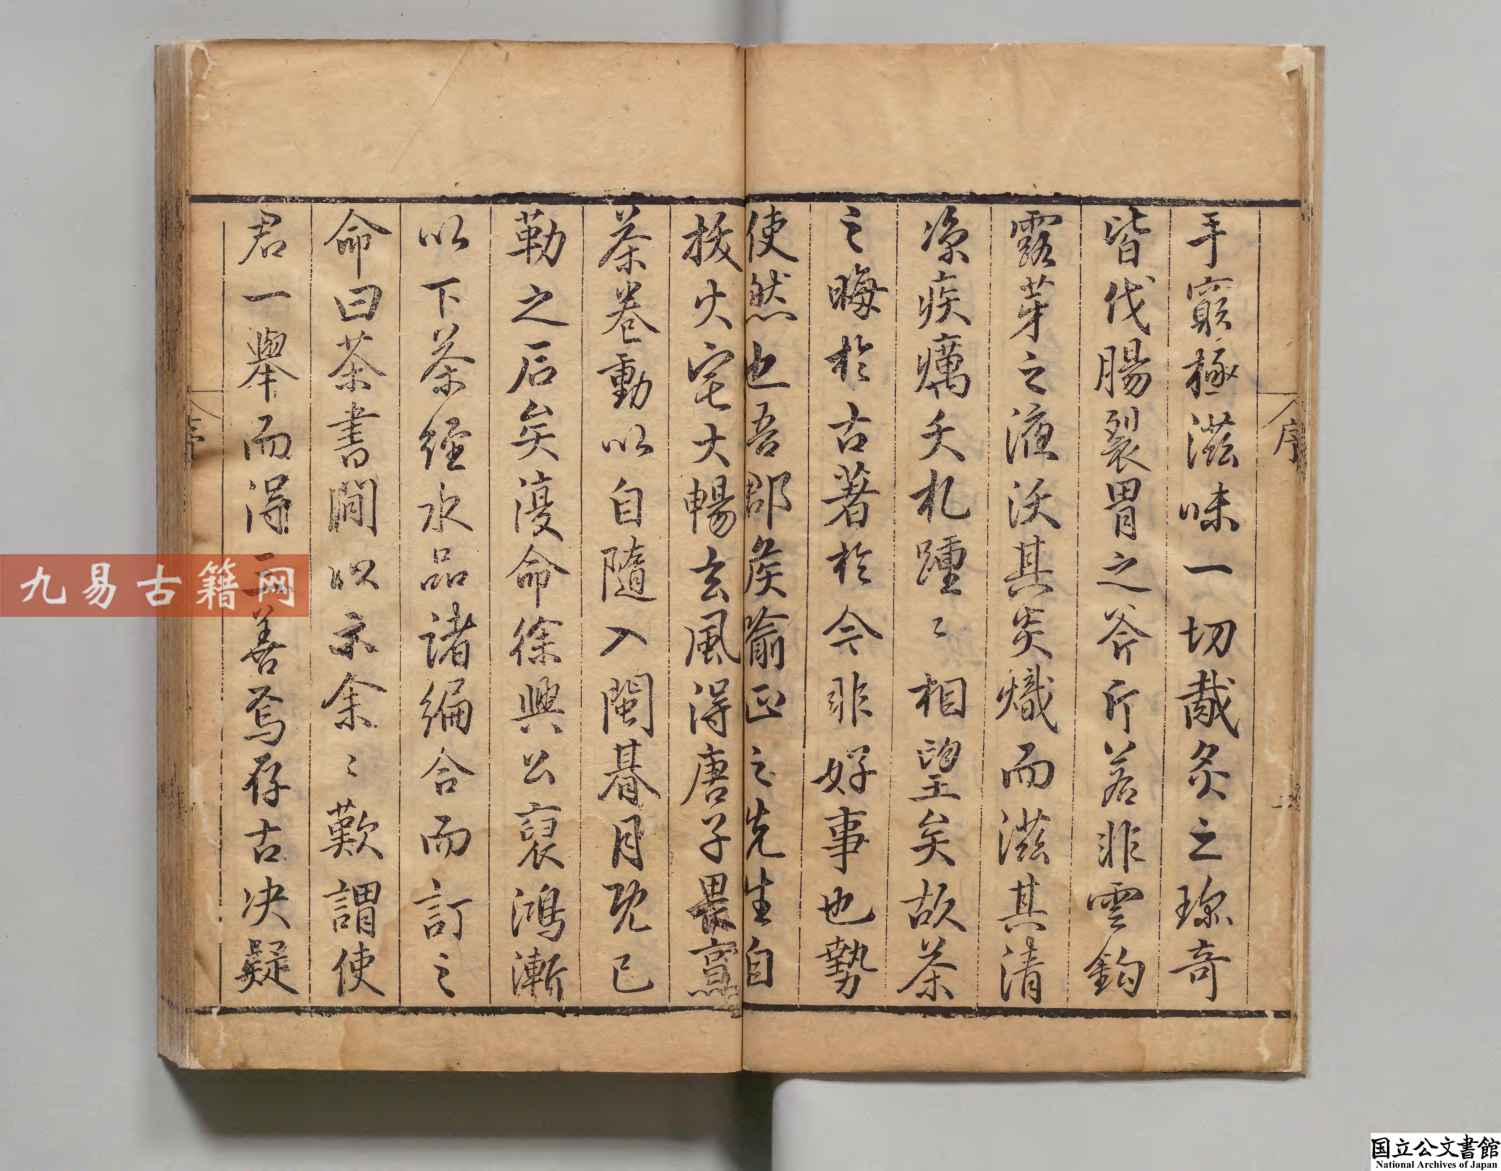 序
手窮極滋味一切胾炙之珎奇
皆伐腸裂胃之斧斤若非雲鈎
露芽之液沃其炎熾而滋其清
凉疾癘夭札踵〻相望矣故茶
之晦於古著於今非好事也勢
使然也吾郡侯喻正之先生自
拔火宅大暢玄風得唐子畏烹
茶卷動以自隨入閩朞月既已
勒之石矣復命徐興公裒鴻漸
以下茶經水品諸編合而訂之
命曰茶書間以示余〻歎謂使
君一舉而得三善焉存古决疑
九易古籍网
国立公文書館
National Archives of Japan